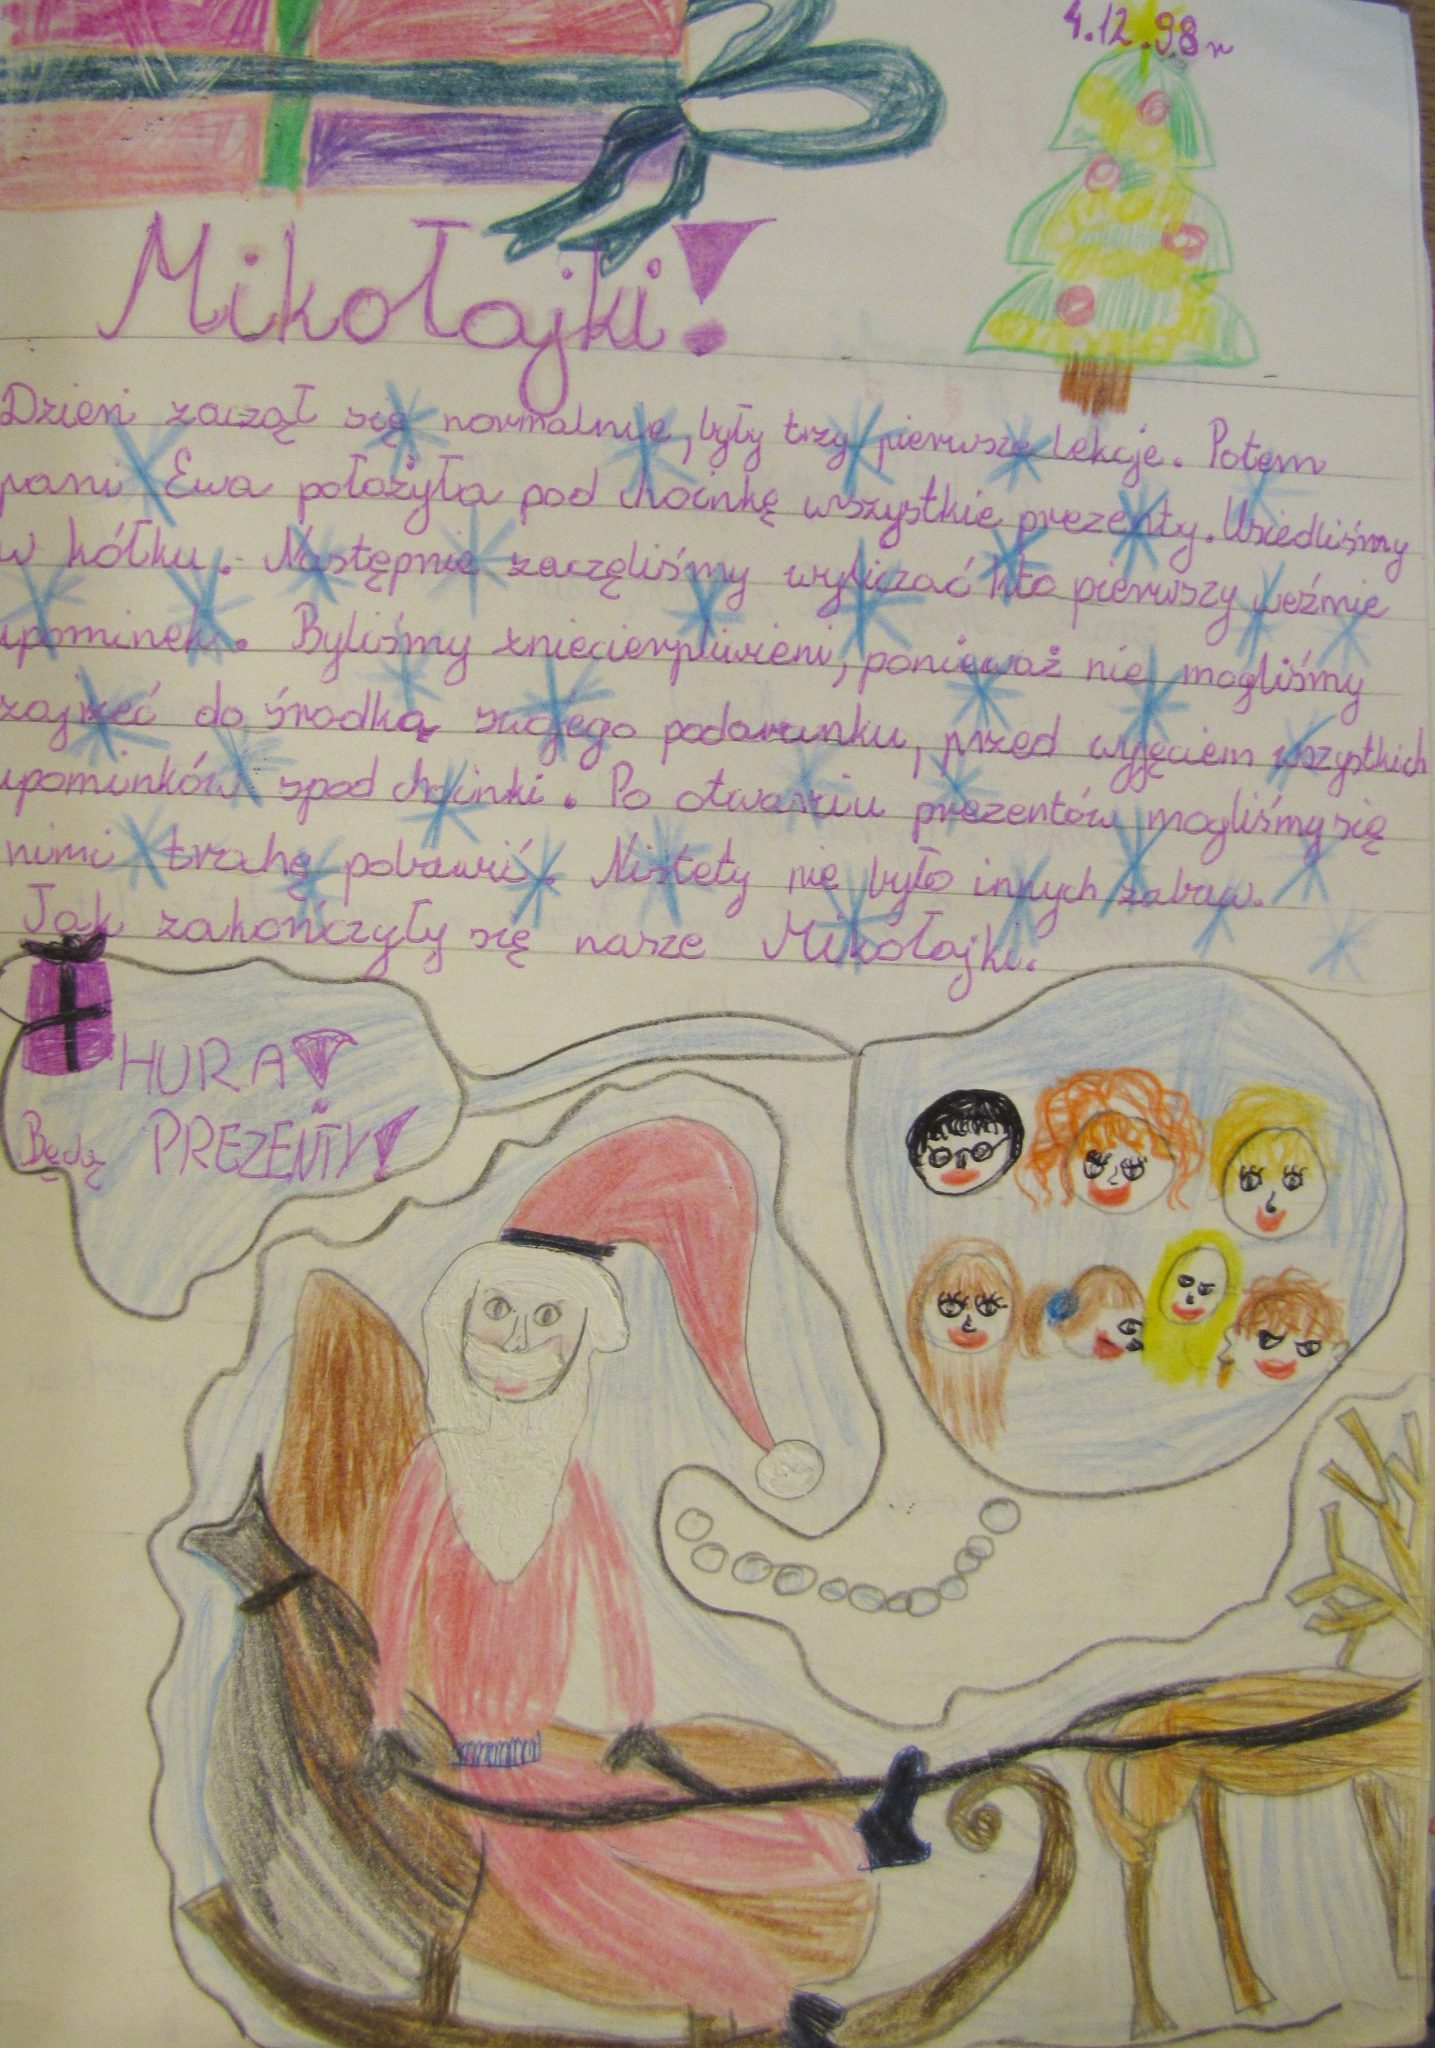 4.12.98r
Mikołajki!
Dzień zaczął się normalnie, były trzy pierwsze lekcje. Potem
pani Ewa położyła pod choinkę wszystkie prezenty. Usiedliśmy
w kółku. Następnie zaczęliśmy wyliczać kto pierwszy weźmie
upominek. Byliśmy zniecierpliwieni, ponieważ nie mogliśmy
zajrzeć do środka swojego podarunku, przed wyjęciem wszystkich
upominków spod choinki. Po otwarciu prezentów mogliśmy się
nimi trohę pobawić. Nistety nie było innych zabaw.
Tak zakończyły się nasze Mikołajki.
HURA!
Będą PREZENTY!